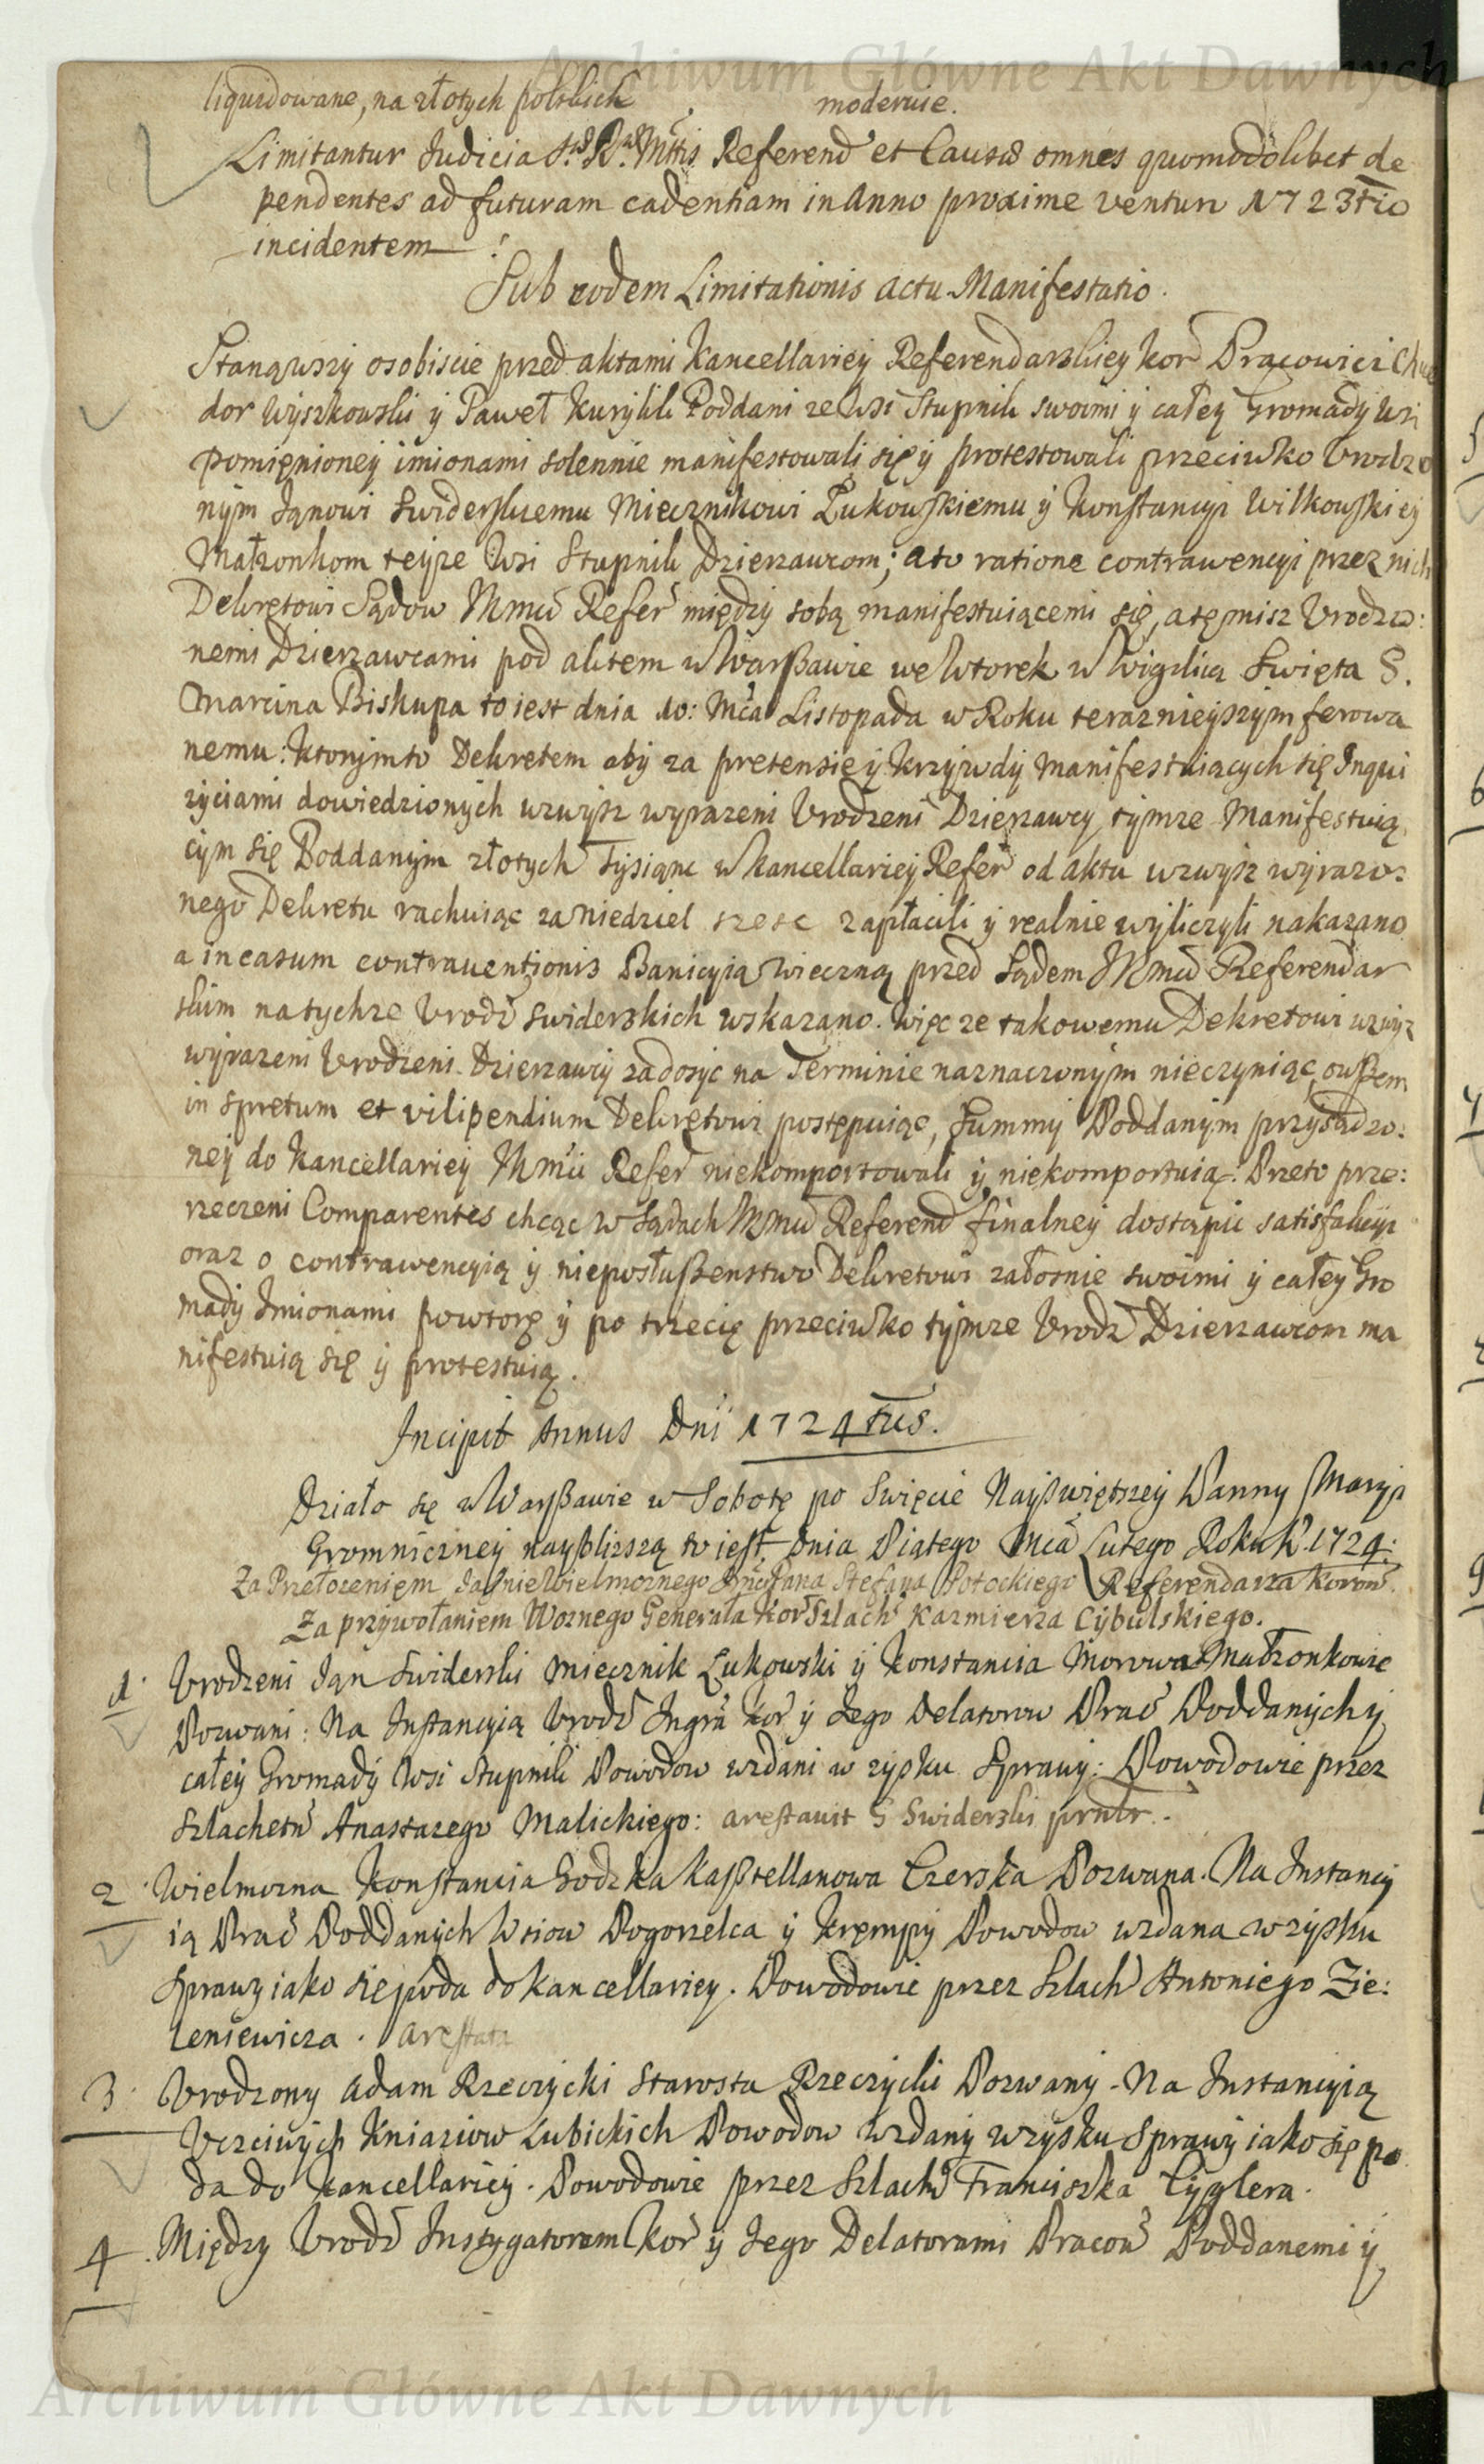 Archiwum Główne Akt Dawnych
liquidowane, na złotych polskich moderuie.
Limitantur Judicia S. R. Mttis Referend et Causas omnes quomodolibet de
pendentes ad futuram cadentiam in Anno proxime venturo 1723tio
incidentem
Sub eodem Limitationis actu Manifestatio.
Stanąwszy osobiscie przed aktami Kancellariey Referendarskiey Kor Pracowici Chwe
dor Wyszkowski y Paweł Kurylik Poddani ze Wsi Stupnik swoimi y całey Gromady Wsi
pomięnioney imionami solennie manifestowali się y protestowali przeciwko Vrodzo
nym Janowi Swiderskiemu Miecznikowi Łukowskiemu y Konstancyi Wilkowskiey
Małżonkom teyze Wsi Stupnik Dzierzawcom; a to ratione contrawencyi przez nich
Dekretowi Sądow JKmci Refer między sobą manifestuiącemi się, a tęmisz Vrodzo:
nemi Dzierzawcami pod aktem w Warßawie we Wtorek w Wigilią Swięta S.
Marcina Biskupa to iest dnia 10: Mca Listopada w Roku teraznieyszym ferowa
nemu. Ktorymto Dekretem aby za pretensie y krzywdy Manifestuiących się Inqui
zyciami dowiedzionych wzwysz wyrazeni Vrodzeni Dzierzawcy tymze Manifestuią
cym się Poddanym złotych Tysiąnc w Kancellariey Refer od aktu wzwysz wyrazo:
nego Dekretu rachuiąc za Niedziel szesc zapłacili y realnie wyliczyli nakazano
a in casum contrauentionis Banicyią wieczną przed Sądem JKmci Referendar
skim na tychze Vrodz Swiderskich wskazano. Więc ze takowemu Dekretowi wzwyz
wyrazeni Vrodzeni Dzierzawcy zadosyc na Terminie naznaczonym nieczyniąc, oußem
in spretum et vilipendium Dekretowi postępuiąc, Summy Poddanym przysądzo:
ney do Kancellariey JKmci Refer niekomportowali y niekomportuią. Przeto prze:
rzeczeni Comparentes chcąc w Sądach JKmci Referend finalney dostąpic satisfakcyi
oraz o contrawencyią y nieposłußenstwo Dekretowi załosnie swoimi y całey Gro
mady Imionami powtorę y po trzecię przeciwko tymze Vrodz Dzierzawcom ma
nifestuią się y protestuią.
Incipit Annus Dni 1724tus.
Działo się w Warßawie w Sobotę po Swięcie Nayßwiętszey Panny Maryi
Gromniczney nayblizszą to iest dnia Piątego Mca Lutego Roku P. 1724:
Za Przełozeniem Jasnie Wielmoznego Jmci Pana Stefana Potockiego Referendarza Koron.
Za przywołaniem Woznego Generała Kor Szlach Kazmierza Cybulskiego.
1. Vrodzeni Jan Swiderski Miecznik Łukowski y Konstancia Małzonkowie
Pozwani: Na Instancyią Vrodz Ingra Kor y Jego Delatorow Prac Poddanych y
całey Gromady Wsi Stupnik Powodow wzdani w zysku Sprawy: Powodowie przez
Szlachetn Anastazego Malickiego: arestauit G Swiderski
2. Wielmozna Konstancia Godzka Kaßtellanowa Czerska Pozwana. Na Instancy
ią Prac Poddanych Wsiow Pogorzelca y Krempy Powodow wzdana w zysku
Sprawy iako się poda do Kancellariey. Powodowie przez Szlach Antoniego Zie:
leniewicza. arestatt
3. Vrodzony Adam Rzeczycki Starosta Rzeczycki Pozwany. Na Instancyią
Vczciwych Kniaziow Lubickich Powodow Wzdany w zysku Sprawy iako się po
da do Kancellariey. Powodowie przez Szlach Franciszka Cyglera.
4. Między Vrodz Instygatorem Kor y Jego Delatorami Pracow Poddanemi y
Archiwum Główne Akt Dawnych